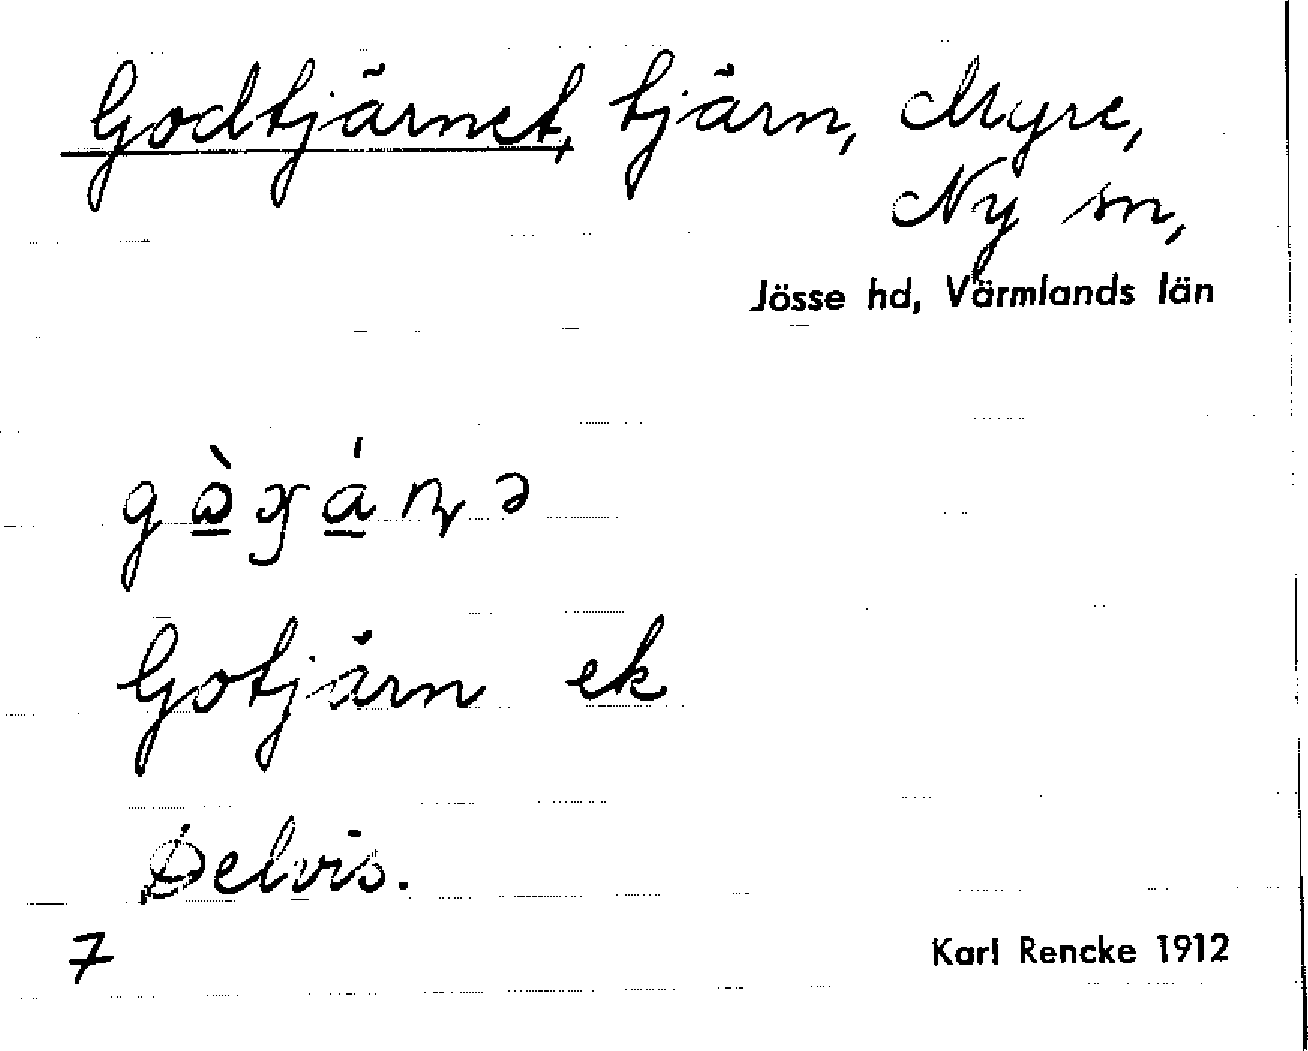 Godtjärnet, tjärn, Myre,
Ny sn,
Jösse hd, Värmlands län
Gotjärn ek
Delvis.
7
Karl Rencke 1912